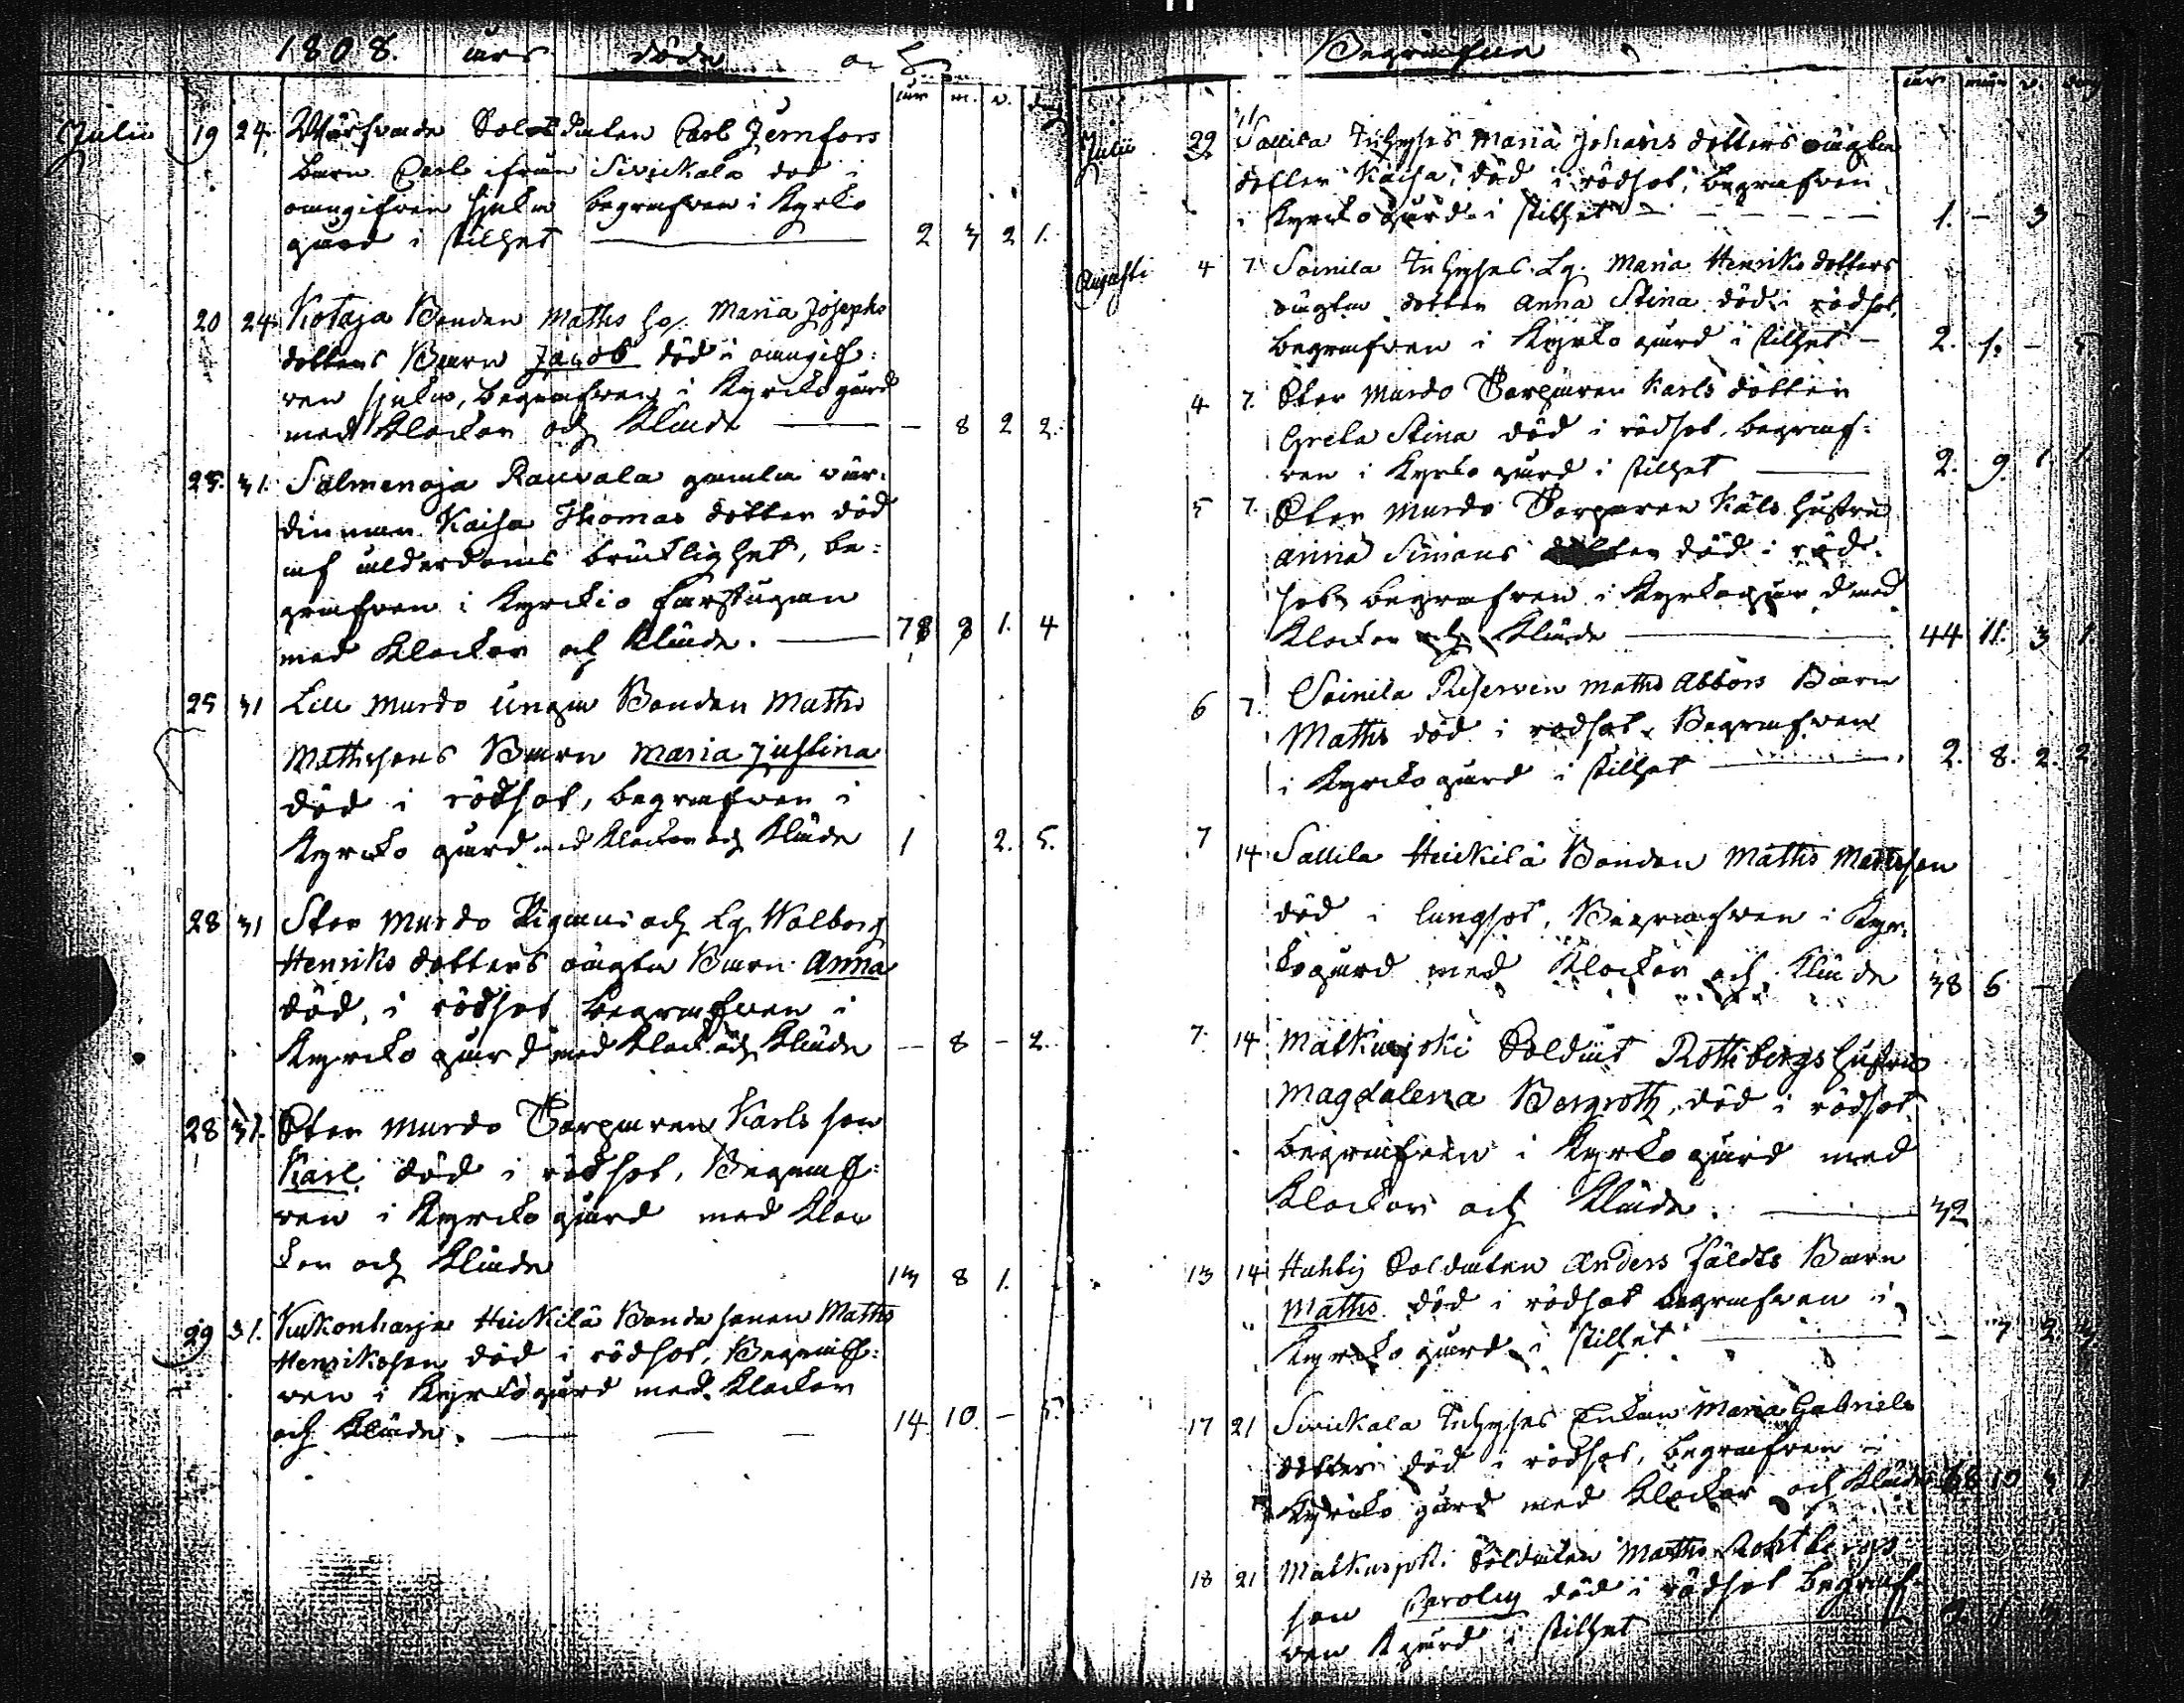 1808. års döda och
år m. v. dag
Julii 19 24. Wärfvade Soldaten Carl Jernfors
barn Carl ifrån Sivickala död i
oangifven sjukd. begrafven i Kyrko
gård i stillhet 2 3 2 1.
20 24. Kotaja Bonden Matts h. Maria Josephs
dotters Barn Jacob död i oangif:
ven sjukd., begrafven i Kyrcko gård
med Klockor och Kläde — 8 2 2.
25. 31. Salmenoja Rauvala gamla vär:
dinnan Kaisa Thomas dotter död
af ålderdoms bräcklighet, be:
grafven i Kyrckio farstugan
med Klockor och Kläde. 78 9 1. 4
25 31 Lill Murdo unga Bonden Matts
Mattssons Barn Maria Justina
död i rödsot, begrafven i
Kyrcko gård med Klockor och Kläde 1 2. 5.
28 31 Stor Murdo Pigans och Lg. Walborg
Henriks dotters oägta Barn Anna
död, i rödsot begrafven i
Kyrcko gård med Klock. och Kläde — 8 — 2.
28 31. Stor Murdo Torparen Karls son
Karl, död i rödsot, Begraf:
ven i Kyrcko gård med Kloc
kor och Kläde 13 8 1.
29 31. Kuckonharja Heickilä Bonde sonen Matts
Henriksson död i rödsot, Begraf:
ven i Kyrkogård med Klockor
och Kläde. 14. 10. — 5.
Begrafne
år mån v. dag
Julii 22 Sallila Inhyses Maria Johans dotters oägta
dotter Kaisa, död i rödsot, begrafven
i Kyrcko gård i stillhet 1. — 3 —
Augusti 4 7 Soinila Inhyses Lg. Maria Henriks dotters
oägta dotter Anna Stina död i rödsot,
begrafven i Kyrko gård i stillhet — 2. 1. — 5
4 7. Stor Murdo Torparen Karls dotter
Greta Stina död i rödsot, begraf:
ven i Kyrko gård i stillhet 2. 9. 1. 1.
5 7. Stor Murdo Torparen Kals hustru
Anna Simons dotter död i röd
sot, begrafven i Kyrkogård med
Klockor och Kläde 44 11. 3 1.
6 7. Soinila Reserven Matts Abbors Barn
Matts död i rödsot, Begrafven
i Kyrcko gård i stillhet 2. 8. 2. 2.
7 14 Sallila Heickilä Bonden Matts Mattsson
död i lungsot, Begrafven i Kyr:
kogård med Klockor och Kläde 38 6 —
7. 14 Matkusjoki Soldat Rothbergs hustru
Magdalena Bergroth, död i rödsot
begrafven i Kyrko gård med
Klockor och Kläde. 32
13 14 Huhtij Soldaten Anders Fäldts Barn
Matts död i rödsot begrafven i
Kyrcko gård i stillhet — 7 2 3.
17 21 Sivickala Inhyses Enkan Maria Gabriels
dotter död i rödsot, begrafven i
Kyrcko gård med Klockor och Kläde 68 10 3 1
18 21 Matkusjoki Soldaten Matts Rohtbergs
son död i rödsot begraf
ven K gård i stillhet